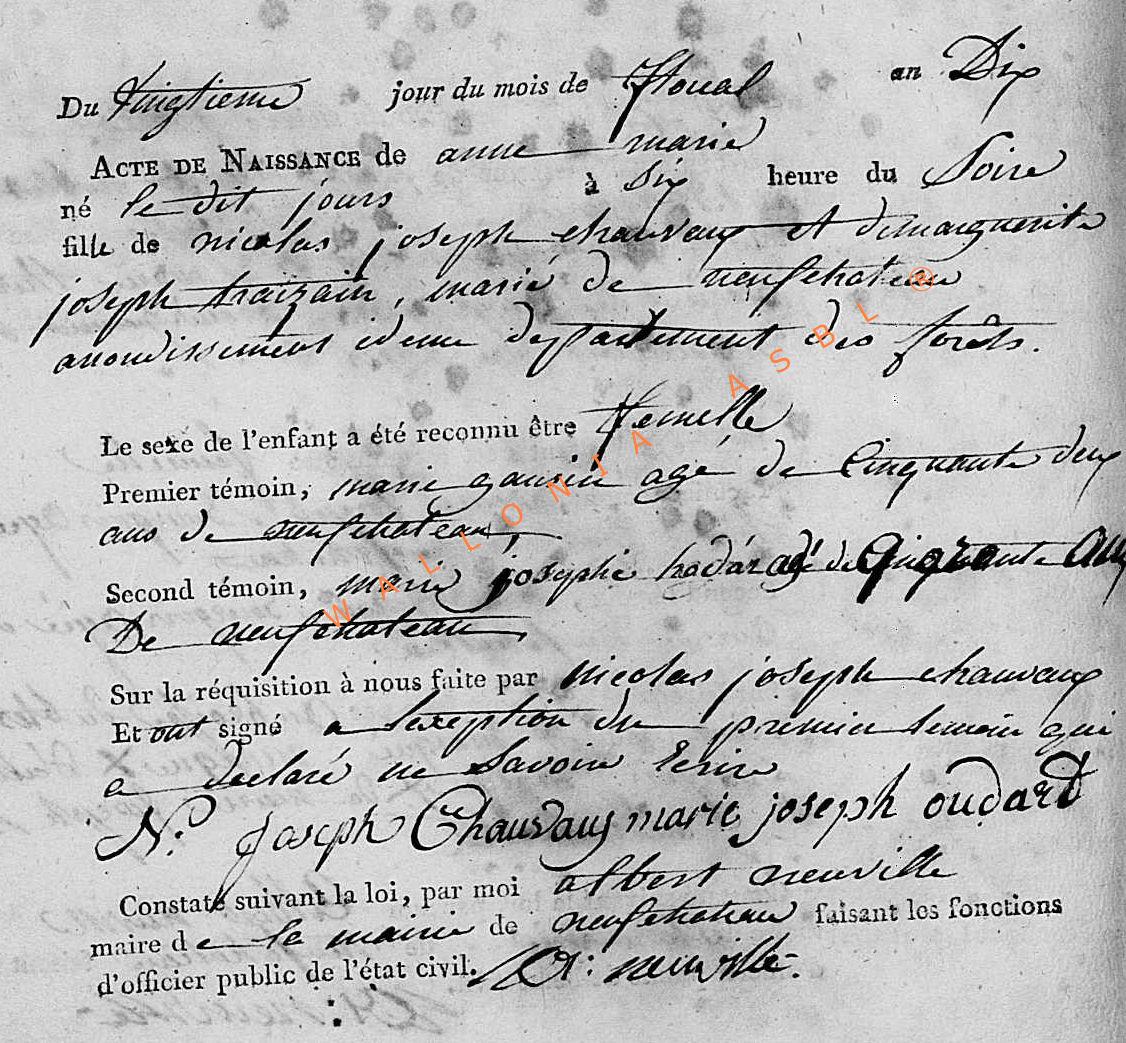 Du Vingtieme jour du mois de floreal an Dix
ACTE DE NAISSANCE de anne marie
né le dit jours à six heure du Soire
fille de nicolas joseph chauvaux et de marguerite
joseph traizain, marié de neufchateau
arrondissement idem departement des forêts.
Le sexe de l'enfant a été reconnu être femelle
Premier témoin, marie agé de Cinquante deux
ans de neufchateau,
Second témoin, marie josephe agé de Cinquante ans
De neufchateau,
Sur la réquisition à nous faite par nicolas joseph chauvaux
Et ont signé a lexception du premier temoin qui
a declaré ne savoir Ecrire
N. Joseph Chauvaux marie joseph oudard
Constaté suivant la loi, par moi albert neuville
maire de la mairie de neufchateau faisant les fonctions
d'officier public de l'état civil. A: neuville.
WALLONIA ASBL ®